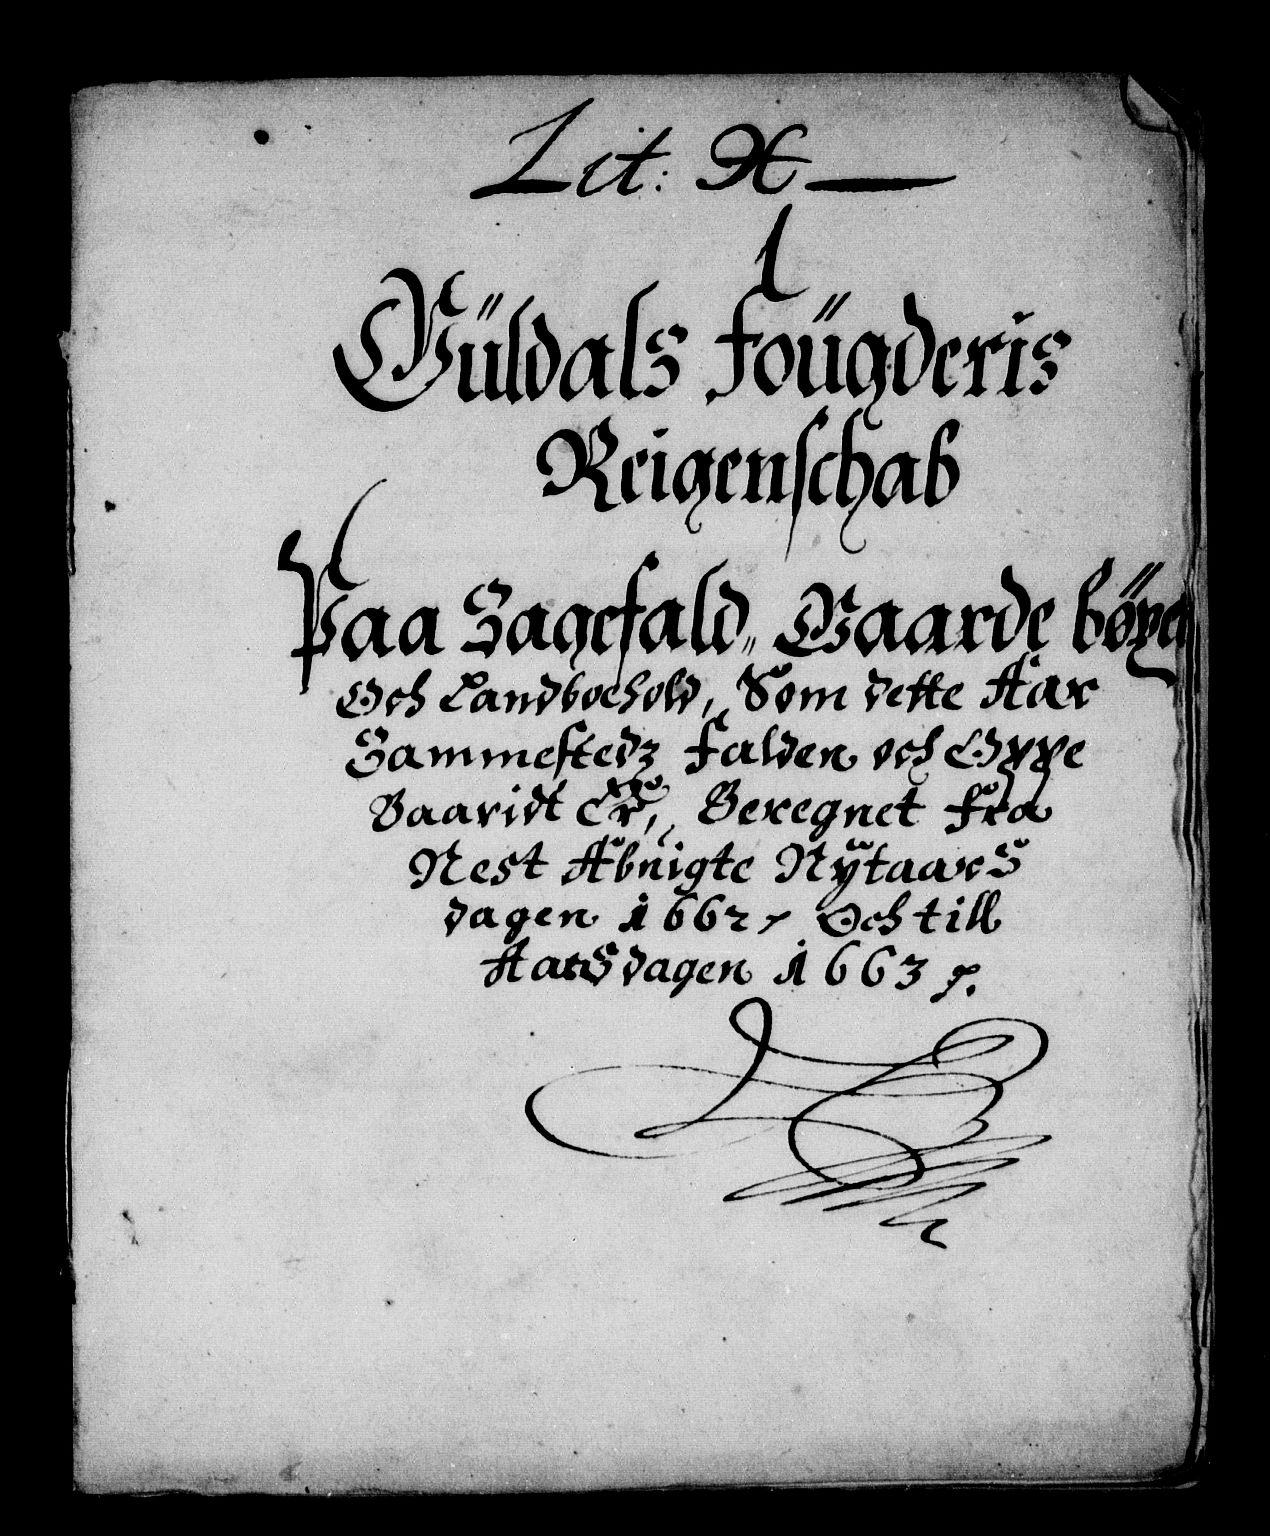 Lit: H
Güldals foügderis
Reigenschab
Paa Sagefald, Gaarde böxel
Och Landboehold, Som dette Aar
Sammestedz falden och Oppe
Baaridt Er, Beregnet fra
Nest Abnigte Nÿtaars
dagen 1662, Och till
AarsDagen 1663